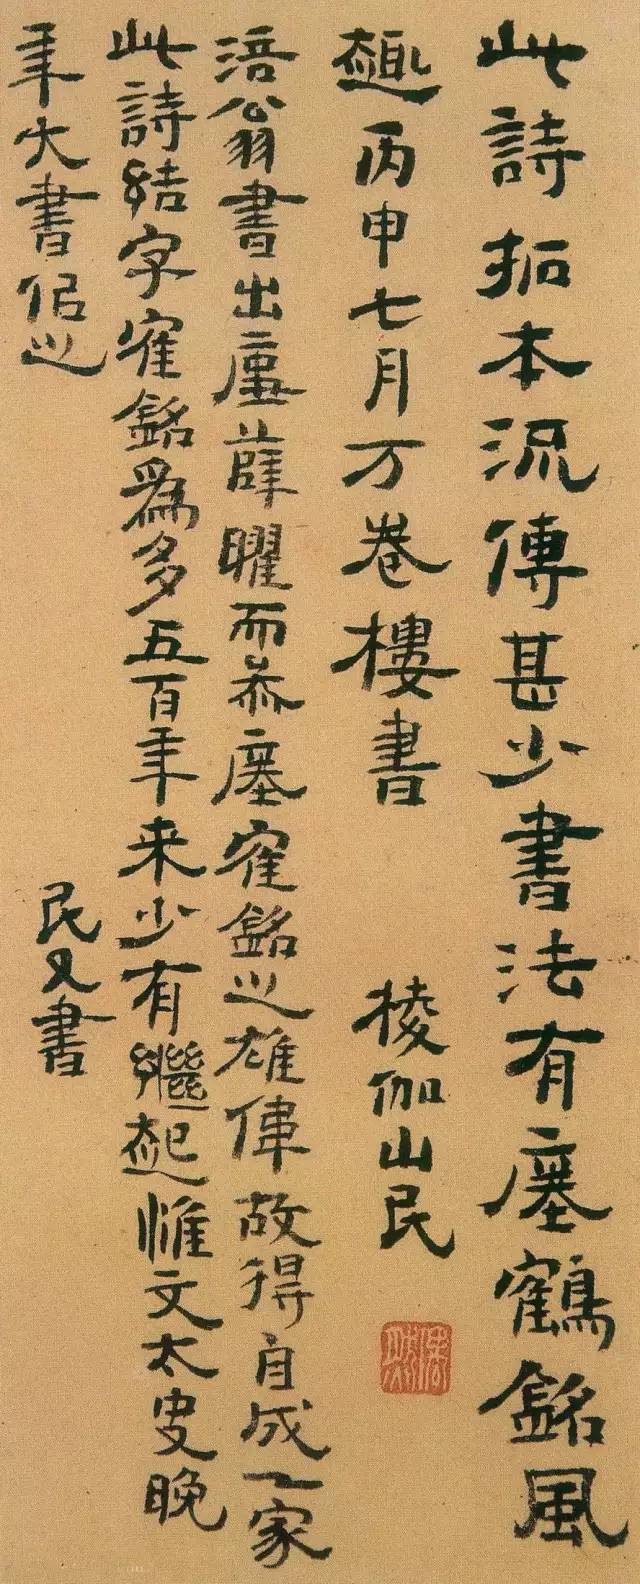 此詩拓本流傳甚少書法有瘞鶴銘風
趣丙申七月万卷樓書 楞伽山民
涪翁書出廛薛曜而叅瘞寉銘之雄偉故得自成一家
此詩結字寉銘爲多五百年来少有繼起惟文太史晚
年大書佀之 民又書